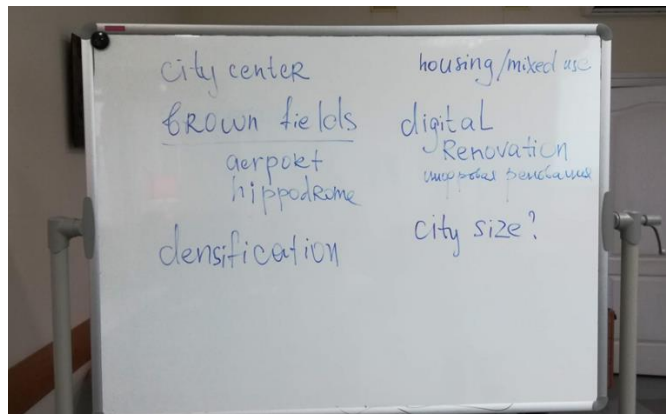 city center
brown fields
aerport
hippodrome
densification
housing/mixed use
digital
Renovation
цифровая реновация
city size?